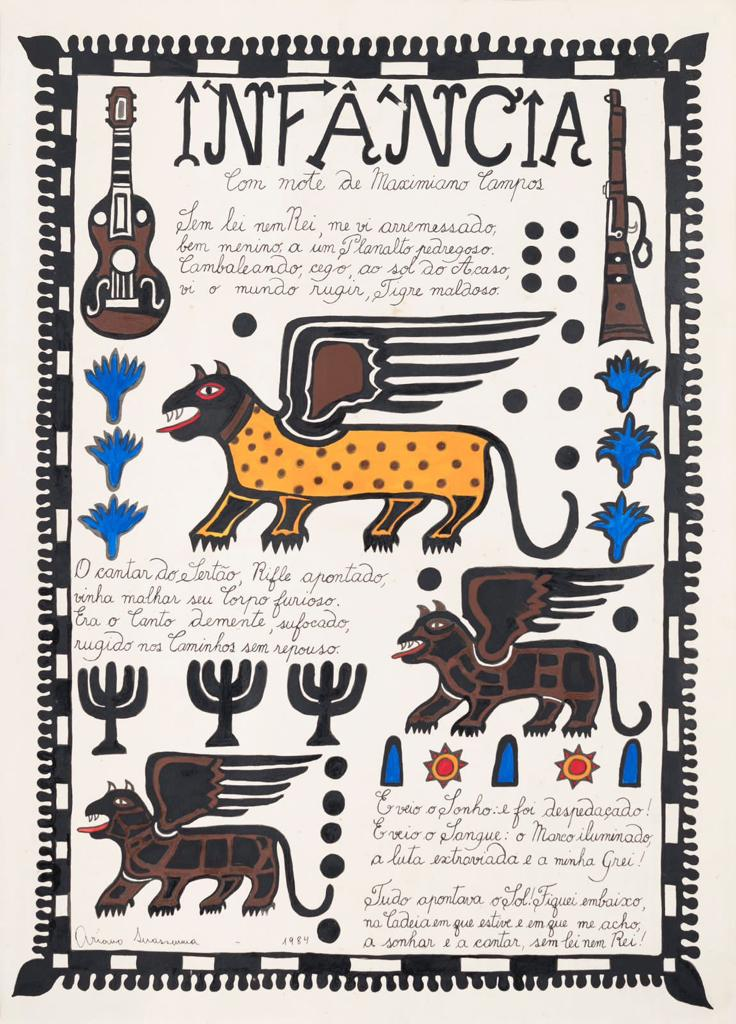 INFÂNCIA
Com mote de Maximiano Campos
Sem lei nem Rei, me vi arremessado,
bem menino, a um Planalto pedregoso.
Cambaleando, cego, ao sol do Acaso,
vi o mundo rugir, Tigre maldoso.
O cantar do Sertão, Rifle apontado,
vinha malhar seu Corpo furioso.
Era o Canto demente, sufocado,
rugido nos Caminhos sem repouso.
E veio o Sonho: e foi despedaçado!
E veio o Sangue: o Marco iluminado,
a luta extraviada e a minha Grei!
Tudo apontava o Sol! Fiquei embaixo,
na Cadeia em que estive e em que me acho,
a sonhar e a cantar, sem lei nem Rei!
Ariano Suassuna - 1984